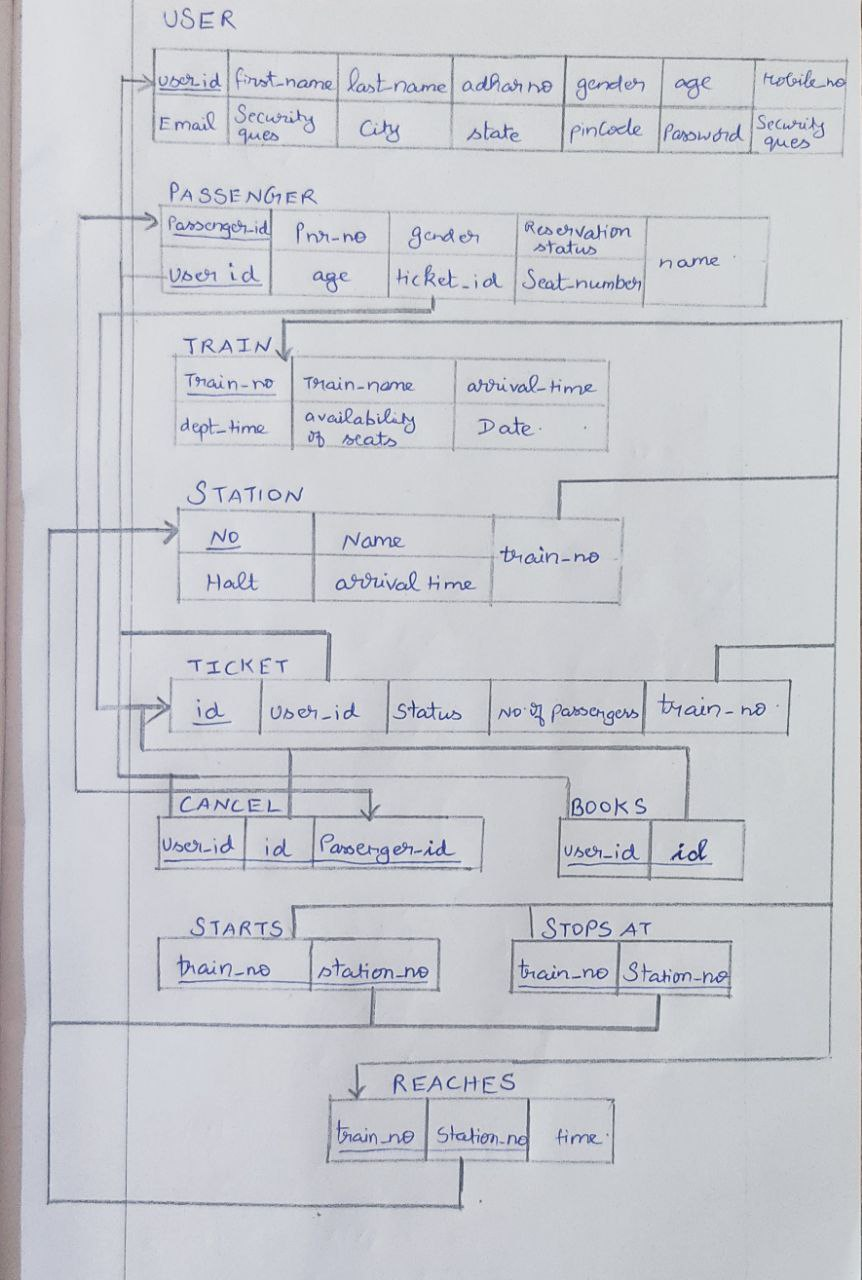 USER
user_id first_name last_name adhar no gender age Mobile_no
Email Security ques City state pincode Password Security ques
PASSENGER
Passenger_id Pnr_no gender Reservation status name
User id age ticket_id Seat_number
TRAIN
Train_no Train_name arrival_time
dept_time availability of seats Date
STATION
No Name train_no
Halt arrival time
TICKET
id user_id Status No. of passengers train_no
CANCEL BOOKS
User_id id Passenger_id user_id id
STARTS STOPS AT
train_no station_no train_no Station_no
REACHES
train_no Station_no time